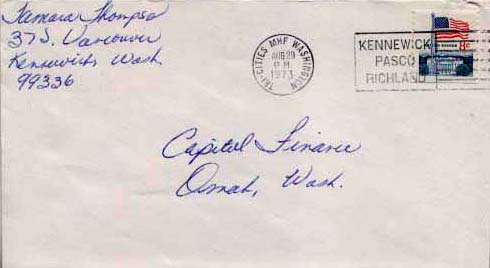 Tamara Thompson
37 S. Vancouver
Kennewick, Wash.
99336
TRI-CITIES MHF WASHINGTON
AUG 29
P M
1973
KENNEWICK
PASCO
RICHLAND
8c
Capitol Finance
Omak, Wash.